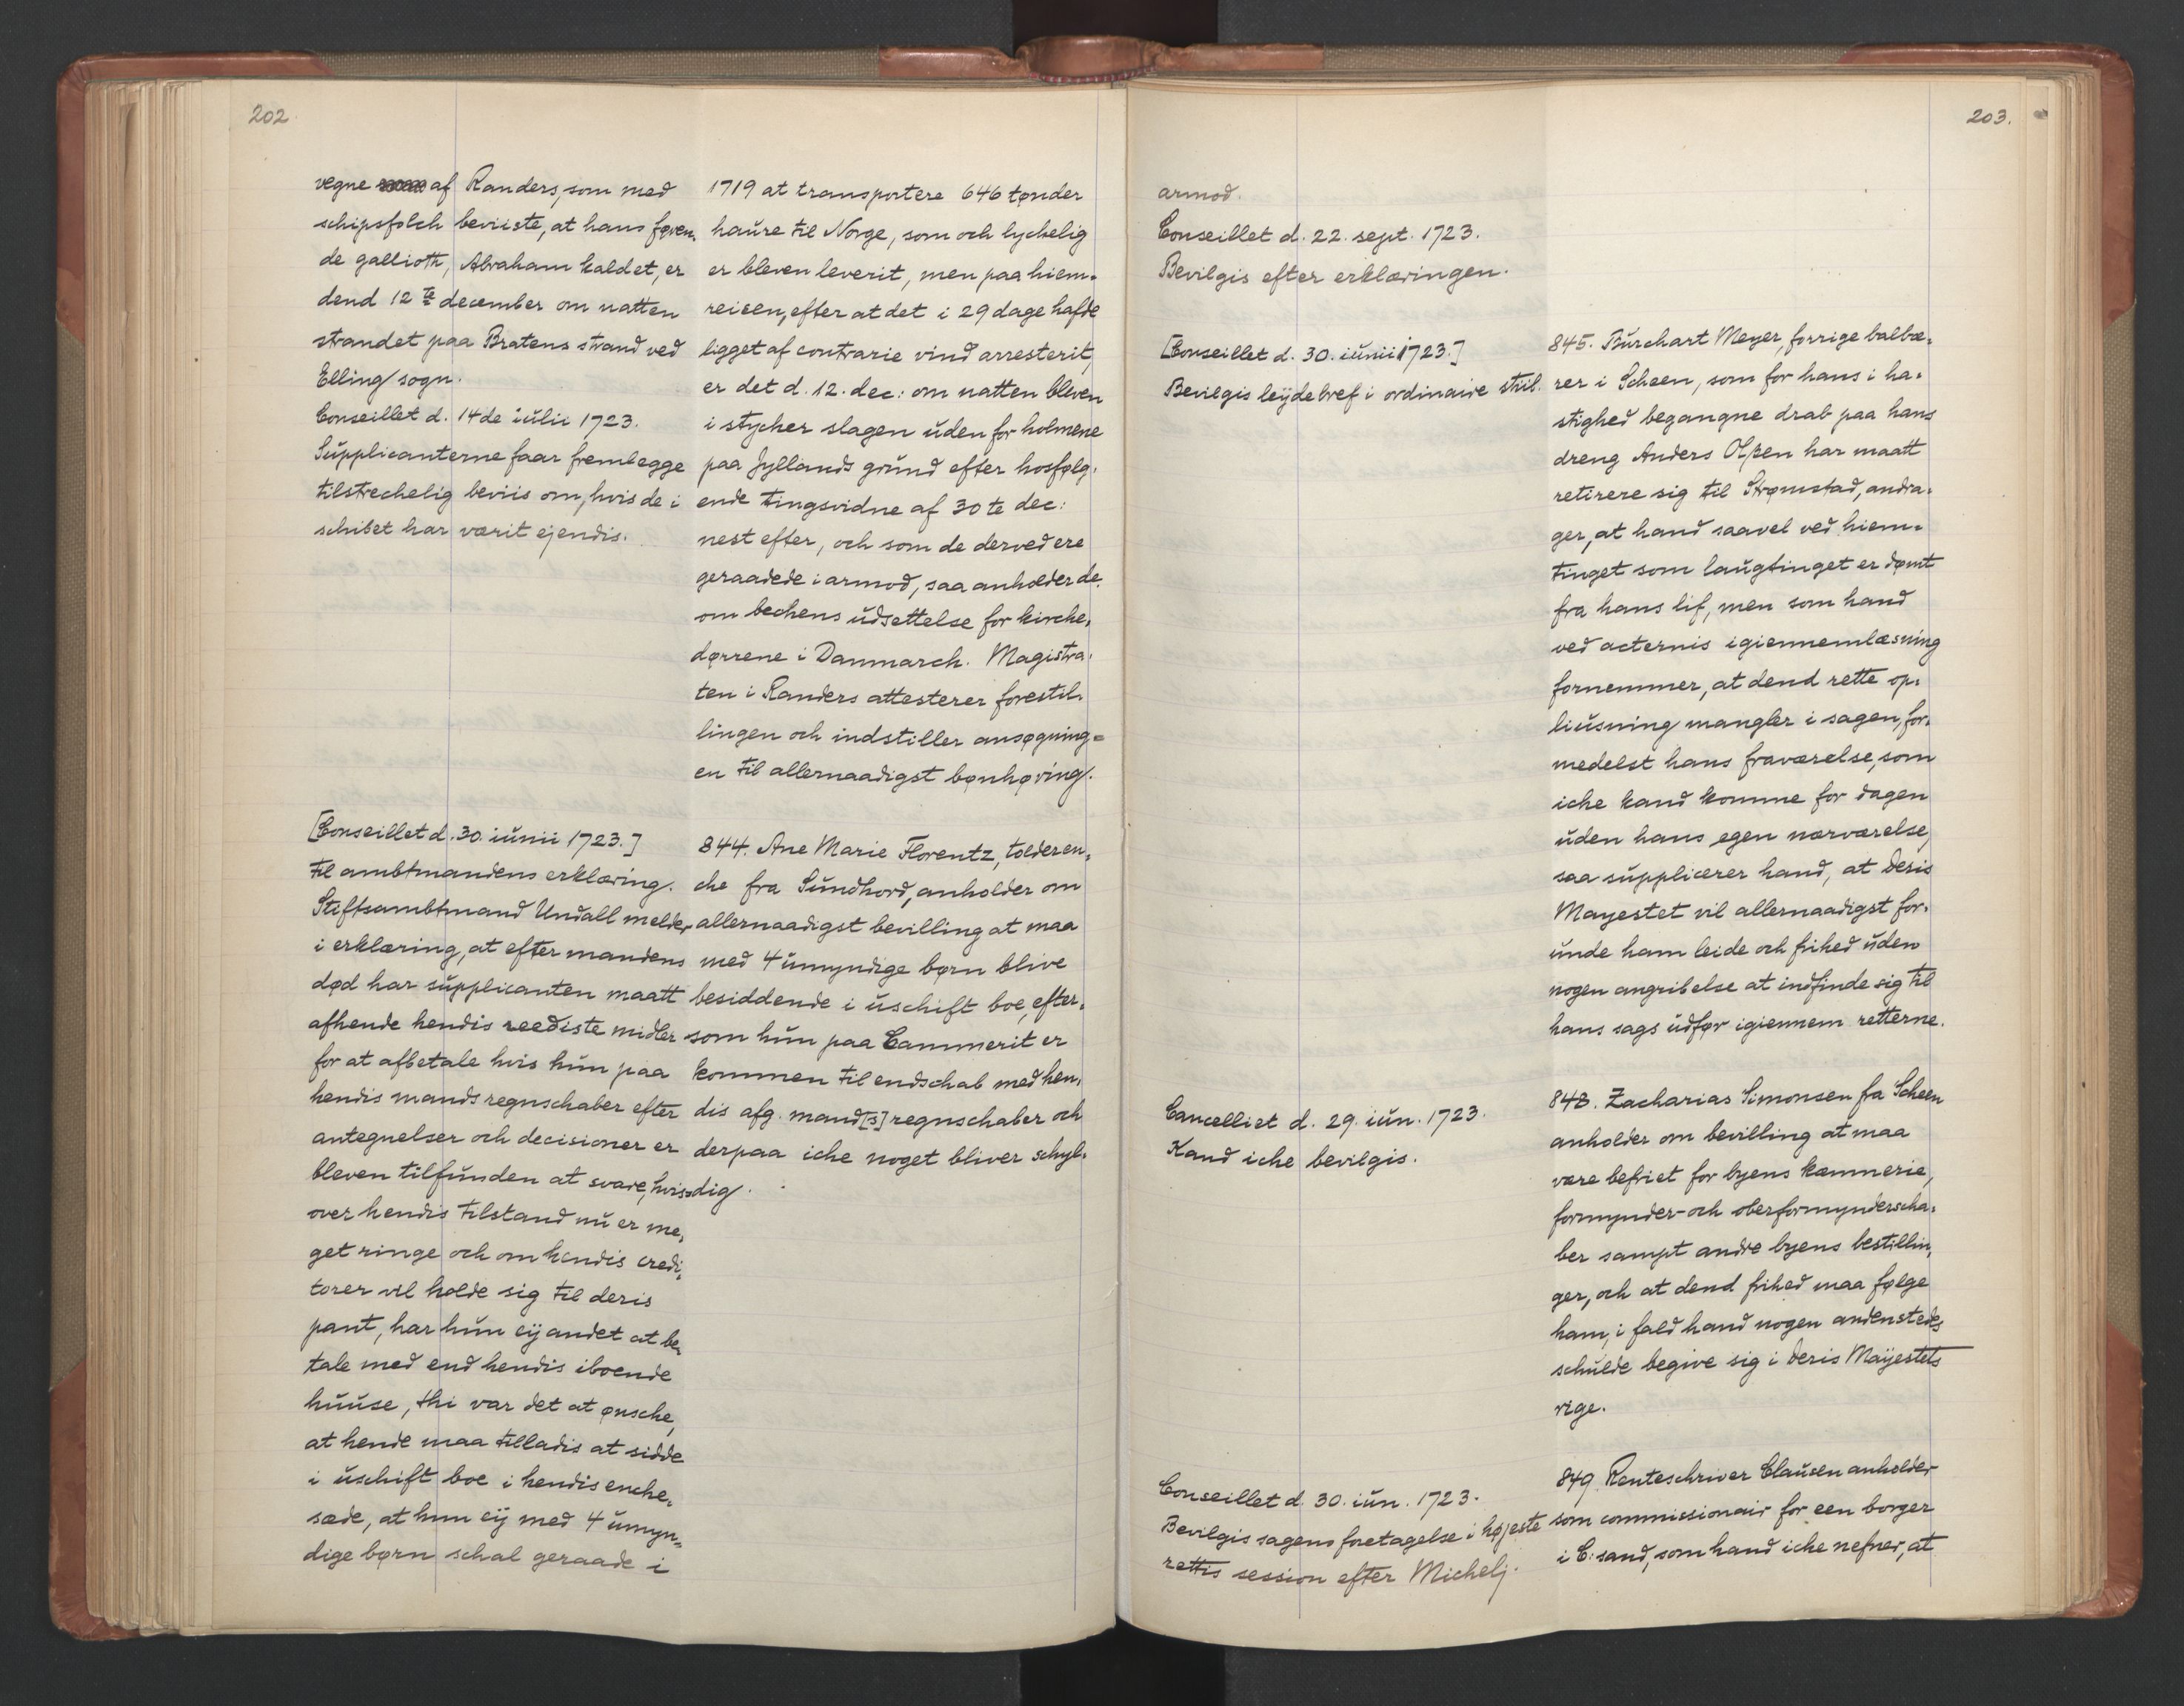 202.
vegne af Randers, som med
schipsfolch beviiste, at hans føren-
de gallioth, Abraham kaldet, er
dend 12te december om natten
strandet paa Bratens strand ved
Elling sogn.
Conseillet d. 14de iulii 1723.
Supplicanterne faar fremlegge
tilstrechelig beviis om, hvis de i
schibet har værit ejendis.
1719 at transportere 646 tønder
haure til Norge, som och lychelig
er bleven leverit, men paa hiem-
reisen, efter at det i 29 dage hafde
ligget af contrarie vind arresterit,
er det d. 12. dec: om natten bleven
i stycher slagen uden for holmene
paa Jyllands grund efter hosfølg-
ende tingsvidne af 30te dec:
nest efter, och som de derved ere
geraadede i armod, saa anholder de
om bechens udsettelse for kirche-
dørrene i Danmarch. Magistra-
ten i Randers attesterer forestil-
lingen och indstiller ansøgning-
en til allernaadigst bønhøring.
[Conseillet d. 30. iunii 1723.]
Til ambtmandens erklæring.
Stiftsambtmand Undall melder
i erklæring, at efter mandens
død har supplicanten maatt
afhende hendis reediste midler
for at afbetale hvis hun paa
hendis mands regnschaber efter
antegnelser och decisioner er
bleven tilfunden at svare, hvis-
over hendis tilstand nu er me-
get ringe och om hendis credi-
torer vil holde sig til deris
pant, har hun eij andet at be-
tale med end hendis iboende
huuse, thi var det at ønsche,
at hende maa tilladis at sidde
i uschift boe i hendis enche-
sæde, at hun eij med 4 umyn-
dige børn schal geraade i
844. Ane Marie Florentz, tolderen-
che fra Sundhord, anholder om
allernaadigst bevilling at maa
med 4 umyndige børn blive
besiddende i uschift boe, efter-
som hun paa Cammerit er
kommen til endschab med hen-
dis afg. mand[s] regnschaber och
derpaa iche noget bliver schyl-
dig.
203.
armod.
Conseillet d. 22. sept. 1723.
Bevilgis efter erklæringen.
[Conseillet d. 30. iunii 1723.]
Bevilgis leijdebref i ordinaire stiil.
845. Burchart Meyer, forrige balbe-
rer i Scheen, som for hans i ha-
stighed begangne drab paa hans
dreng Anders Olßen har maatt
retirere sig til Strømstad, andra-
ger, at hand saavel ved hiem-
tinget som laugtinget er dømt
fra hans lif, men som hand
ved acternis igiennemlæsning
fornemmer, at dend rette op-
liusning mangler i sagen, for-
medelst hans fraværelse, som
iche kand komme for dagen
uden hans egen nærværelse,
saa supplicerer hand, at deris
Mayestet vil allernaadigst for-
unde ham leide och frihed uden
nogen angribelse at indfinde sig til
hans sags udfør igiennem retterne.
Cancelliet d. 29. iun. 1723.
Kand iche bevilgis.
848. Zacharias Simonsen fra Scheen
anholder om bevilling at maa
være befriet for byens kæmnerie,
formynder- och oberformynderscha-
ber sampt andre byens bestillin-
ger, och at dend frihed maa følge
ham, i fald hand nogen andensteds
schulde begive sig i deris Maijestets
rige.
Conseillet d. 30. iun. 1723.
Bevilgis sagens foretagelse i højeste
rettis session efter Michelj.
849. Renteschriver Clausen anholder
som commissionair for een borger
i C:sand, som hand iche nefner, at